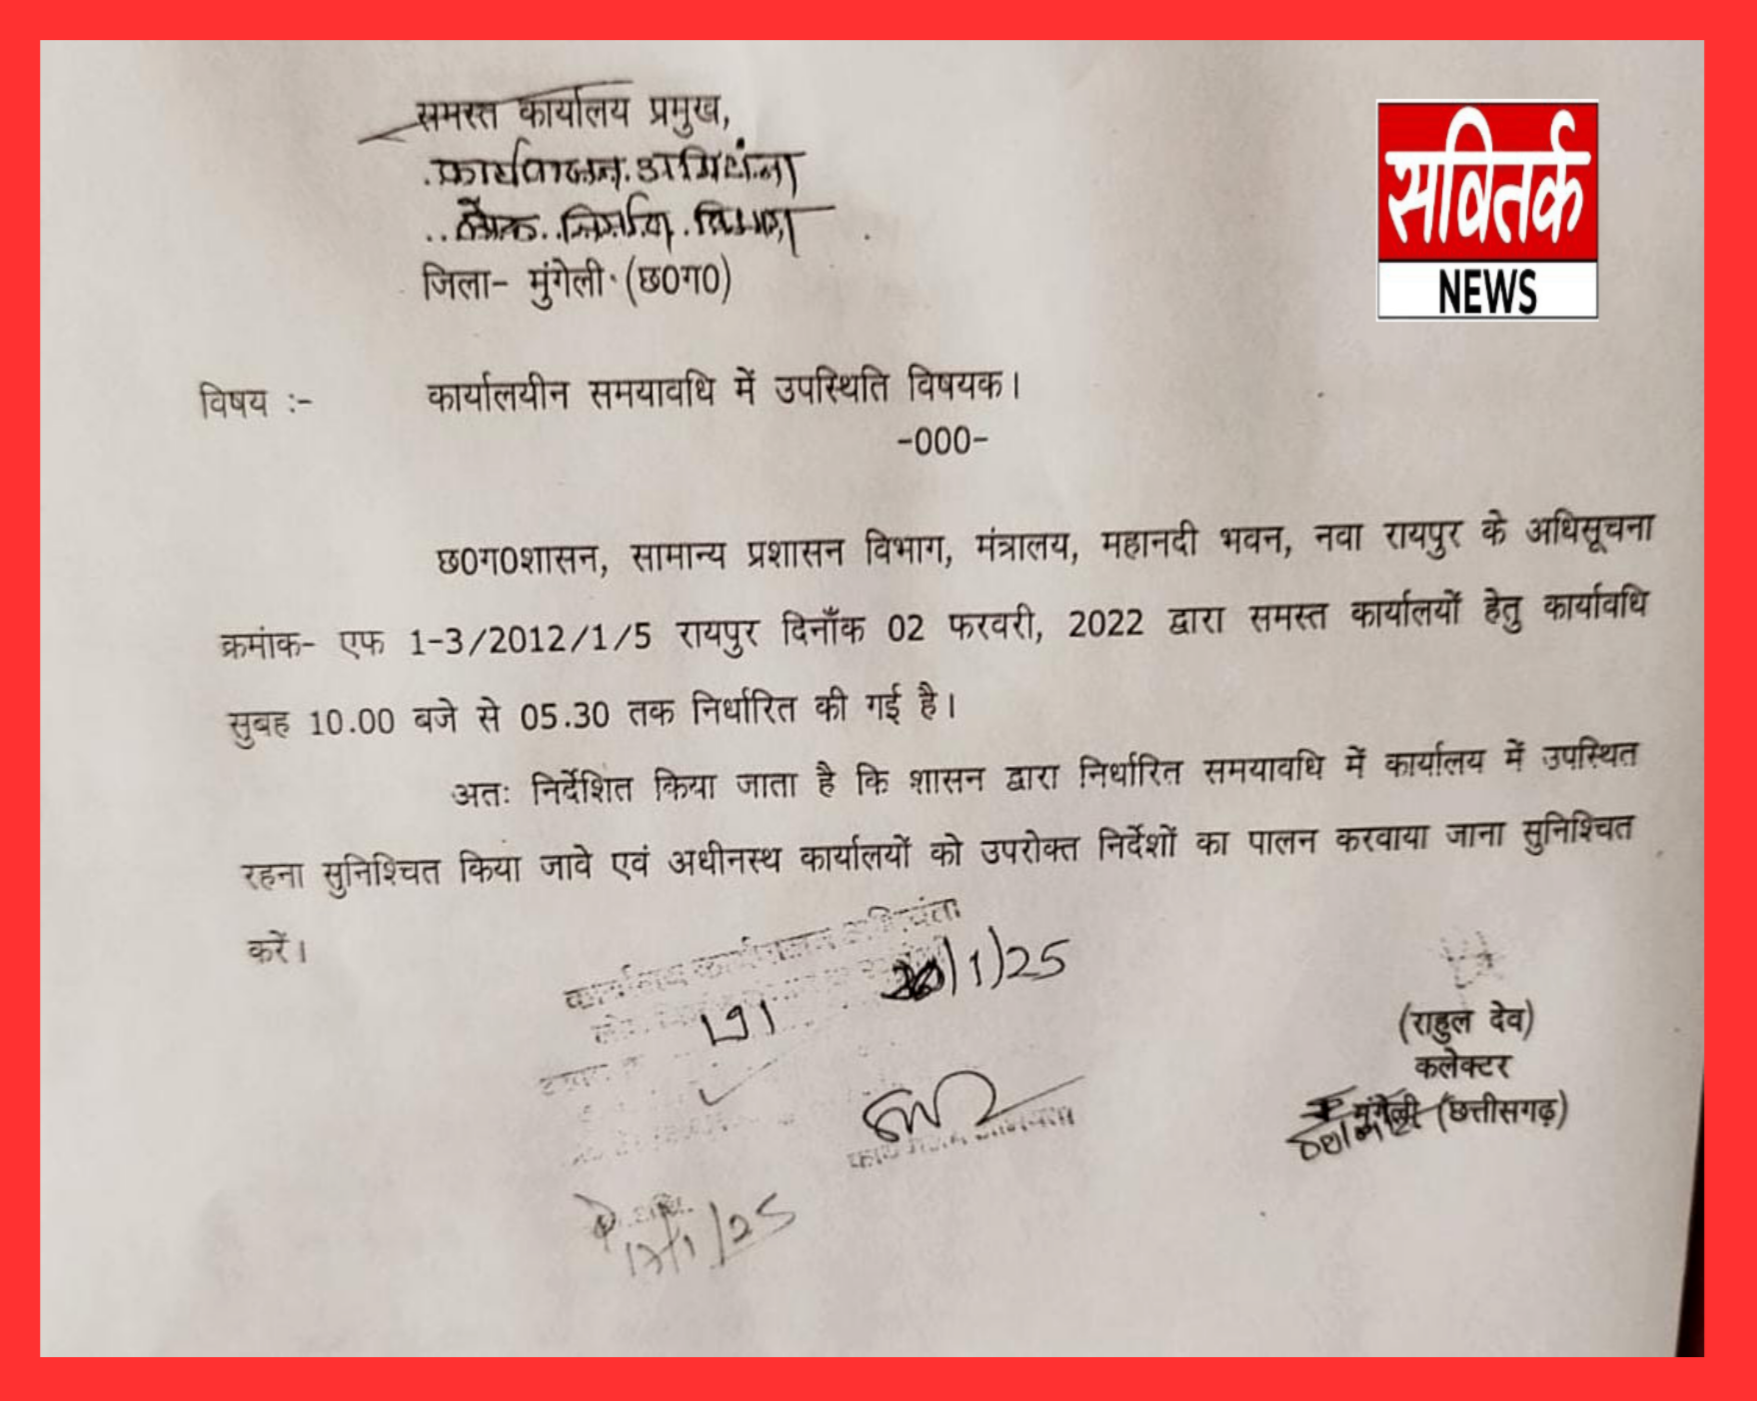 समस्त कार्यालय प्रमुख,
कार्यपालन अभियंता
लोक निर्माण विभाग
जिला- मुंगेली (छ0ग0)
सवितर्क
NEWS
विषय :- कार्यालयीन समयावधि में उपस्थिति विषयक।
-000-
छ0ग0शासन, सामान्य प्रशासन विभाग, मंत्रालय, महानदी भवन, नवा रायपुर के अधिसूचना
क्रमांक- एफ 1-3/2012/1/5 रायपुर दिनाँक 02 फरवरी, 2022 द्वारा समस्त कार्यालयों हेतु कार्यावधि
सुबह 10.00 बजे से 05.30 तक निर्धारित की गई है।
अतः निर्देशित किया जाता है कि शासन द्वारा निर्धारित समयावधि में कार्यालय में उपस्थित
रहना सुनिश्चित किया जावे एवं अधीनस्थ कार्यालयों को उपरोक्त निर्देशों का पालन करवाया जाना सुनिश्चित
करें।
कार्यालय कार्यपालन अभियंता
191
/1/25
(राहुल देव)
कलेक्टर
मुंगेली (छत्तीसगढ़)
17/1/25